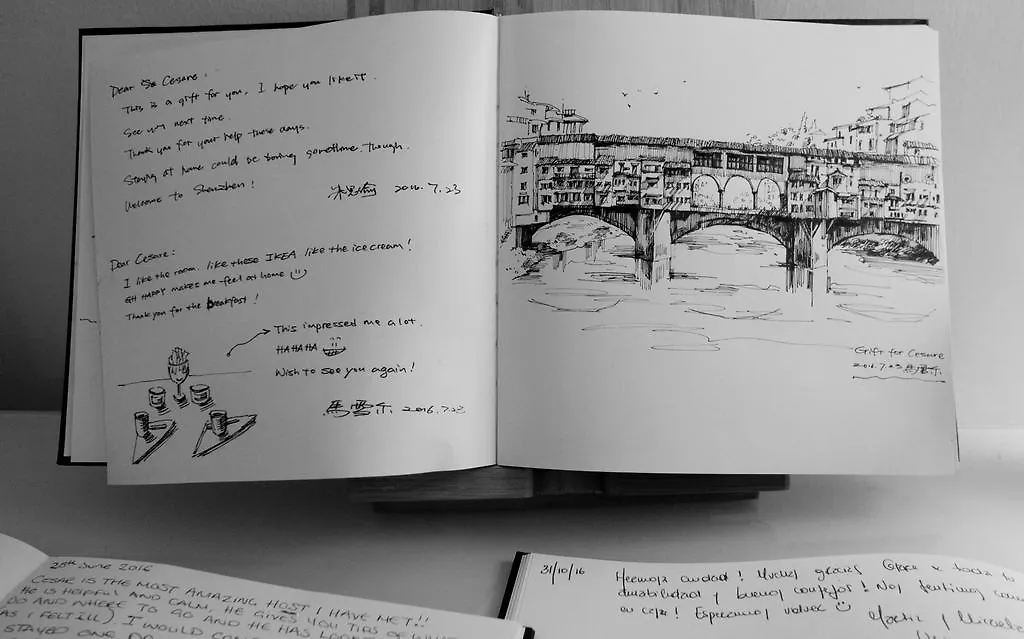 Dear Cesare:
This is a gift for you, I hope you like it.
See you next time.
Thank you for your help these days.
Staying at home could be boring sometime, though.
Welcome to Shenzhen!
2016.7.23
Dear Cesare:
I like the room. like these IKEA like the ice cream!
makes me feel at home
Thank you for the breakfast!
This impressed me a lot.
HAHAHA
Wish to see you again!
馬雪 2016.7.23
Grift for Cesare
2016.7.23 馬雪
25th June 2016
CESAR IS THE MOST AMAZING HOST I HAVE MET!!
HE IS HELPFUL AND CALM, HE GIVES YOU TIPS OF WHAT
DO AND WHERE TO GO AND HE HAS
AS I FELT ILL). I WOULD
STAYED ONE
31/10/16
Hermosa ciudad! Muchas gracias x toda tu
amabilidad y buenos consejos! Nos sentimos como
en casa! Esperamos volver